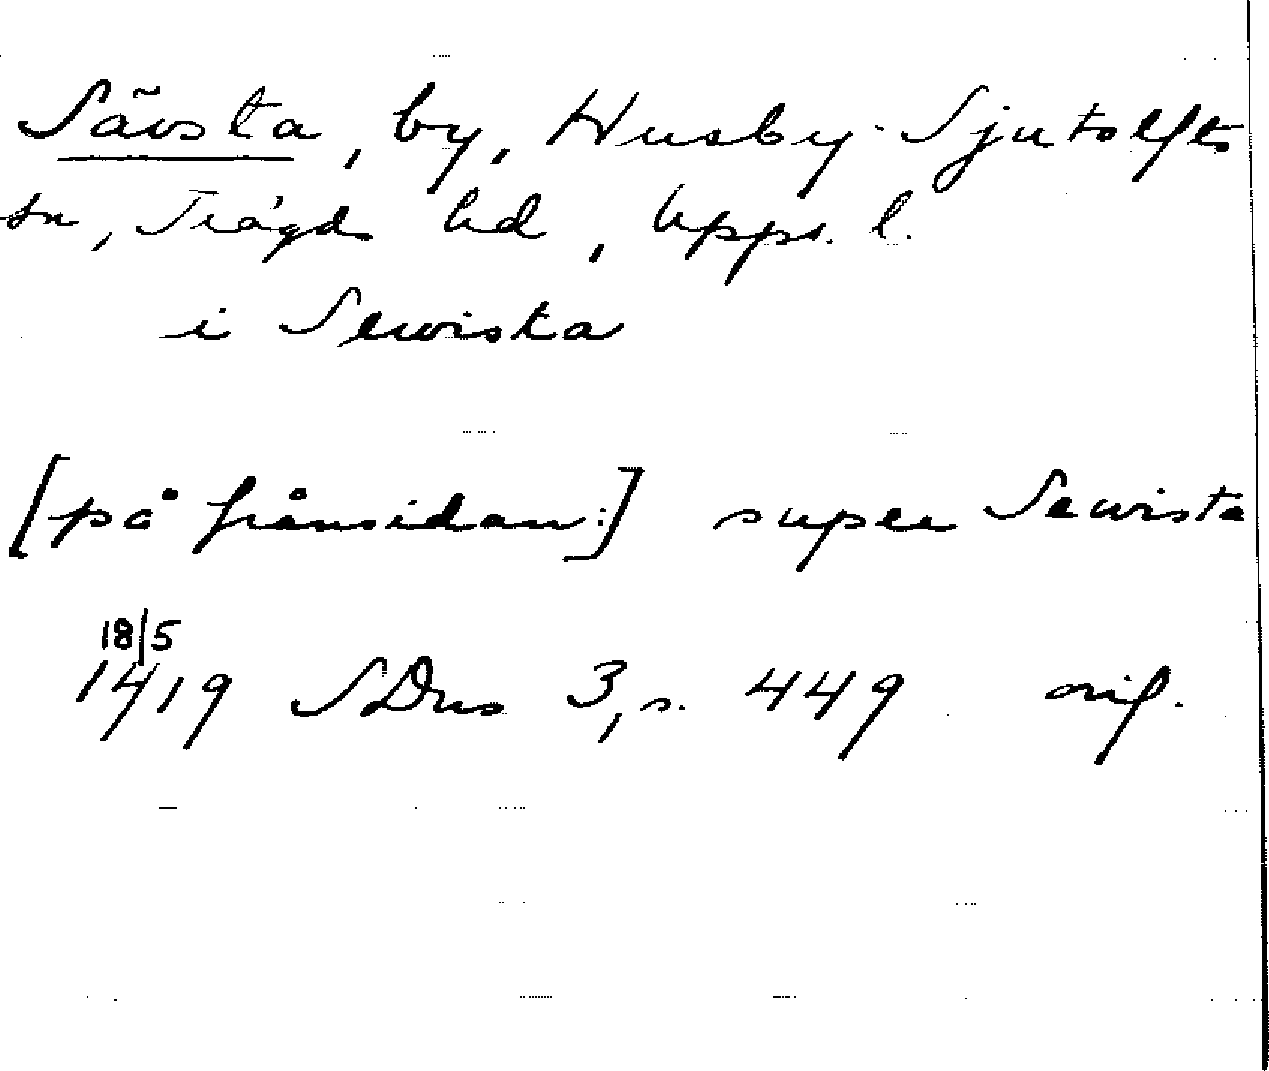 Sävsta, by, Husby-Sjutolfts
sn, Trögds hd, Upps. l.
i Sewista
[på frånsidan:] super Sewista
18/5
1419 SDns 3, s. 449 orig.